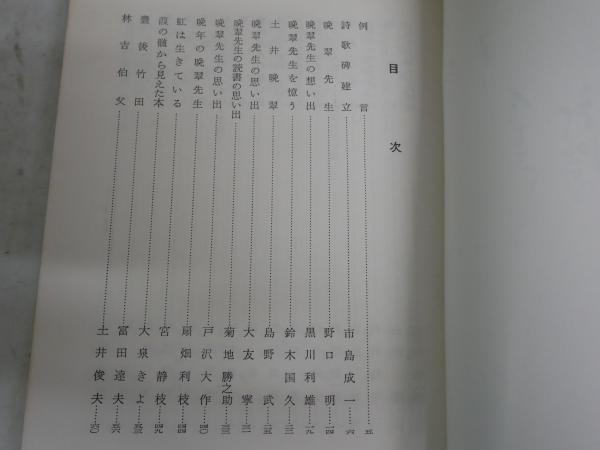 目次
例言……
詩歌碑建立……市島成一……
晩翠先生……野口明……一四
晩翠先生の想い出……黒川利雄……一九
晩翠先生を憶う……鈴木国久……
土井晩翠……島野武……
晩翠先生の思い出……大友寧……三一
晩翠先生の読書の思い出……菊地勝之助……三三
晩翠先生の思い出……戸沢大作……四〇
晩年の晩翠先生……扇畑利枝……四四
紅は生きている……宮静枝……四九
葭の髄から見えた本……大泉きよ……五三
豊後竹田……富田達夫……五六
林吉伯父……土井俊夫……六〇